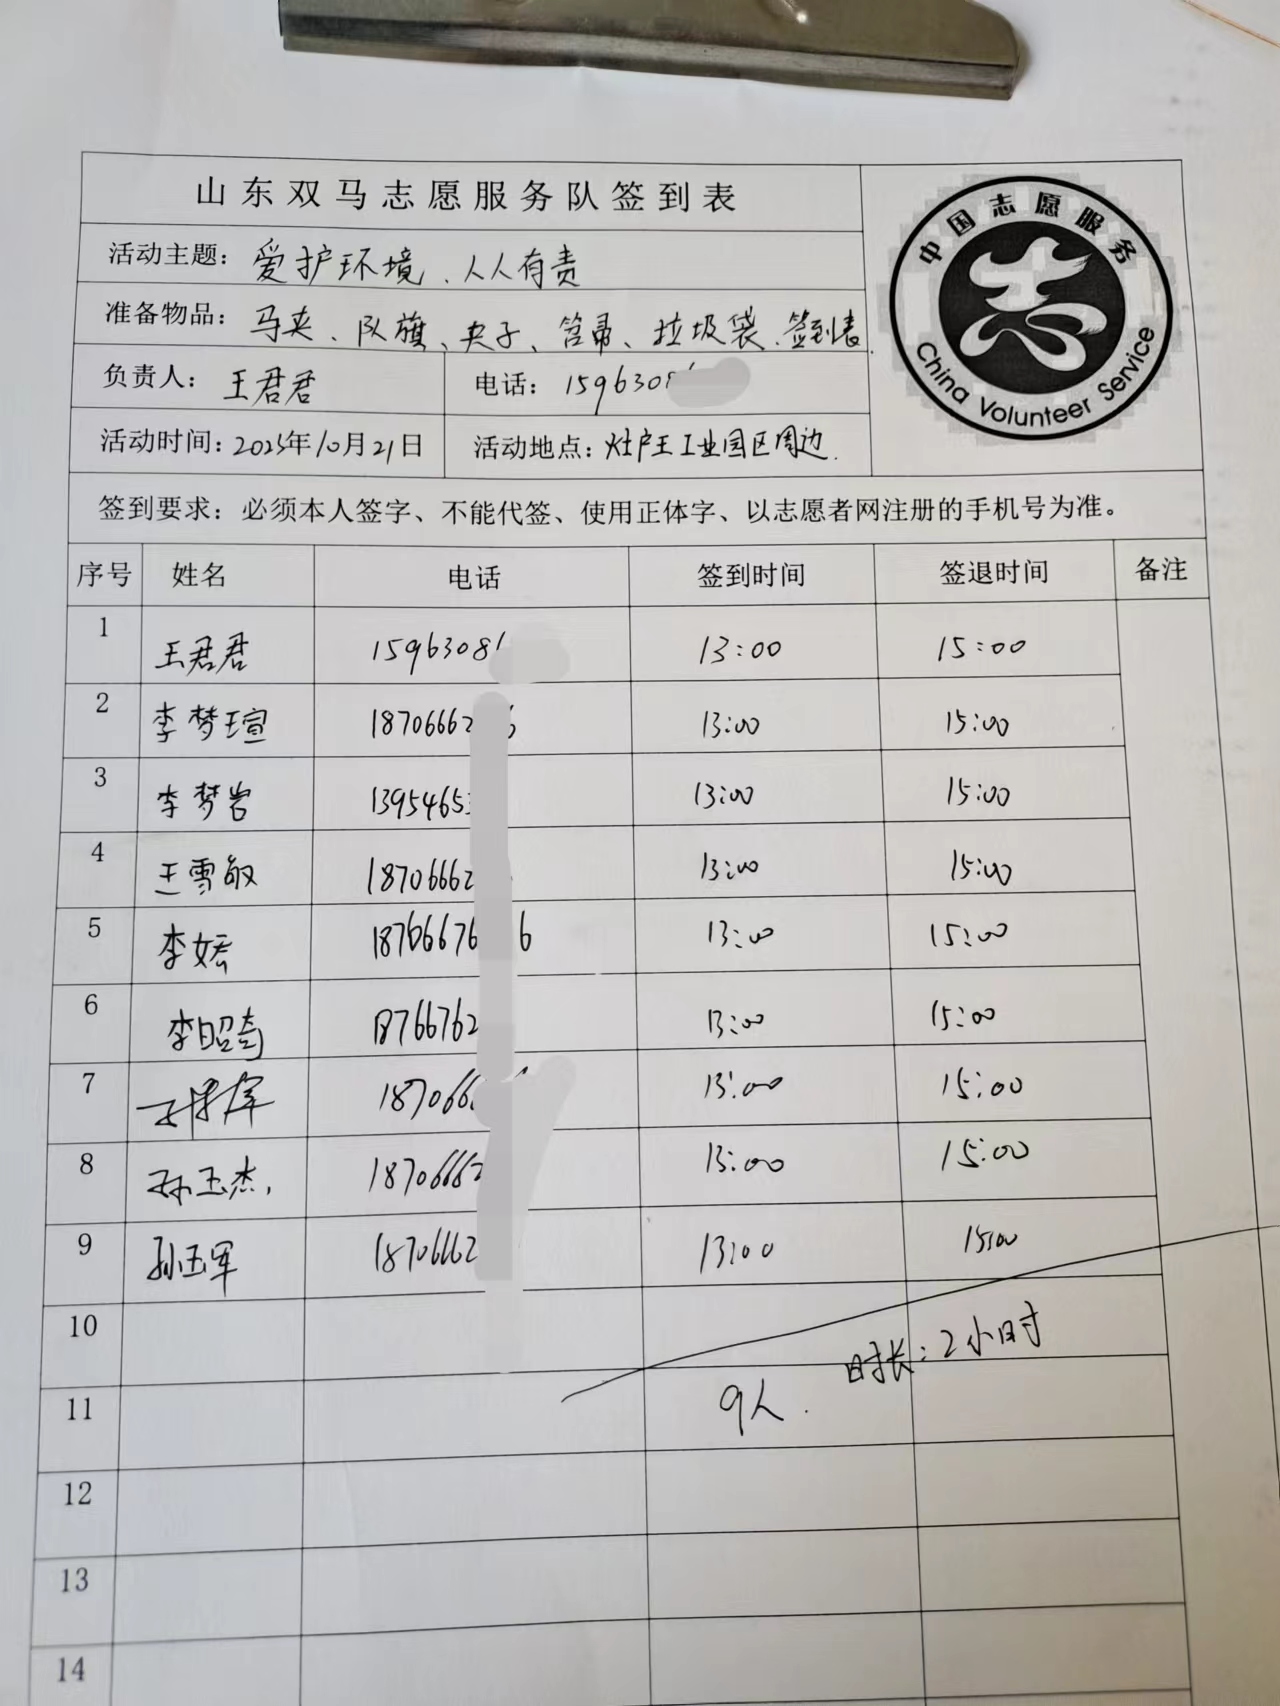 山东双马志愿服务队签到表
中国志愿服务
志
China Volunteer Service
活动主题：爱护环境、人人有责
准备物品：马夹、队旗、夹子、笤帚、垃圾袋、签到表
负责人：王君君 电话：1596308
活动时间：2025年10月21日 活动地点：灶户王工业园区周边
签到要求：必须本人签字、不能代签、使用正体字、以志愿者网注册的手机号为准。
序号 姓名 电话 签到时间 签退时间 备注
1 王君君 1596308 13:00 15:00
2 李梦瑄 18706662 13:00 15:00
3 李梦岩 1395465 13:00 15:00
4 王雪敏 18706662 13:00 15:00
5 李妘 18766676 6 13:00 15:00
6 李昭奇 18766762 13:00 15:00
7 1870666 13:00 15:00
8 孙玉杰 18706662 13:00 15:00
9 孙玉军 18706662 13:00 15:00
10
时长：2小时
11 9人.
12
13
14